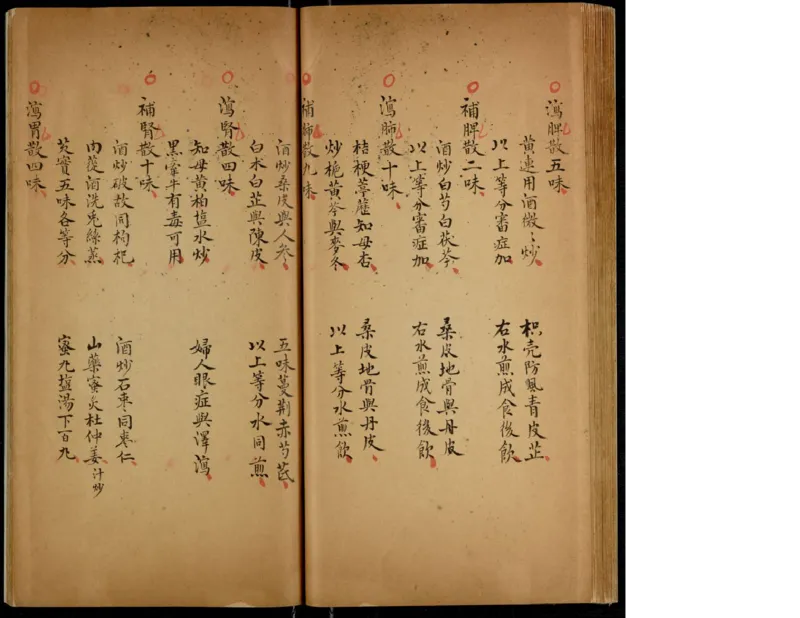 瀉脾散五味
黃連用酒微々炒　枳壳防風青皮芷
以上等分審症加　右水煎成食後飲
補脾散二味
酒炒白芍白茯苓　桑皮地骨與丹皮
以上等分審症加　右水煎成食後飲
瀉肺散十味
桔梗葶藶知母杏　桑皮地骨與丹皮
炒梔黃芩與麥冬　以上等分水煎飲
補肺散九味
酒炒桑皮與人參　五味蔓荆赤芍芪
白朮白芷與陳皮　以上等分水同煎
瀉腎散四味
知母黃柏塩水炒　婦人眼症與澤瀉
黑牽牛有毒可用
補腎散十味
酒炒破故同枸杞　酒炒石枣同枣仁
肉蓯酒洗兎絲蒸　山藥蜜炙杜仲姜汁炒
芡實五味各等分　蜜丸塩湯下百丸
瀉胃散四味